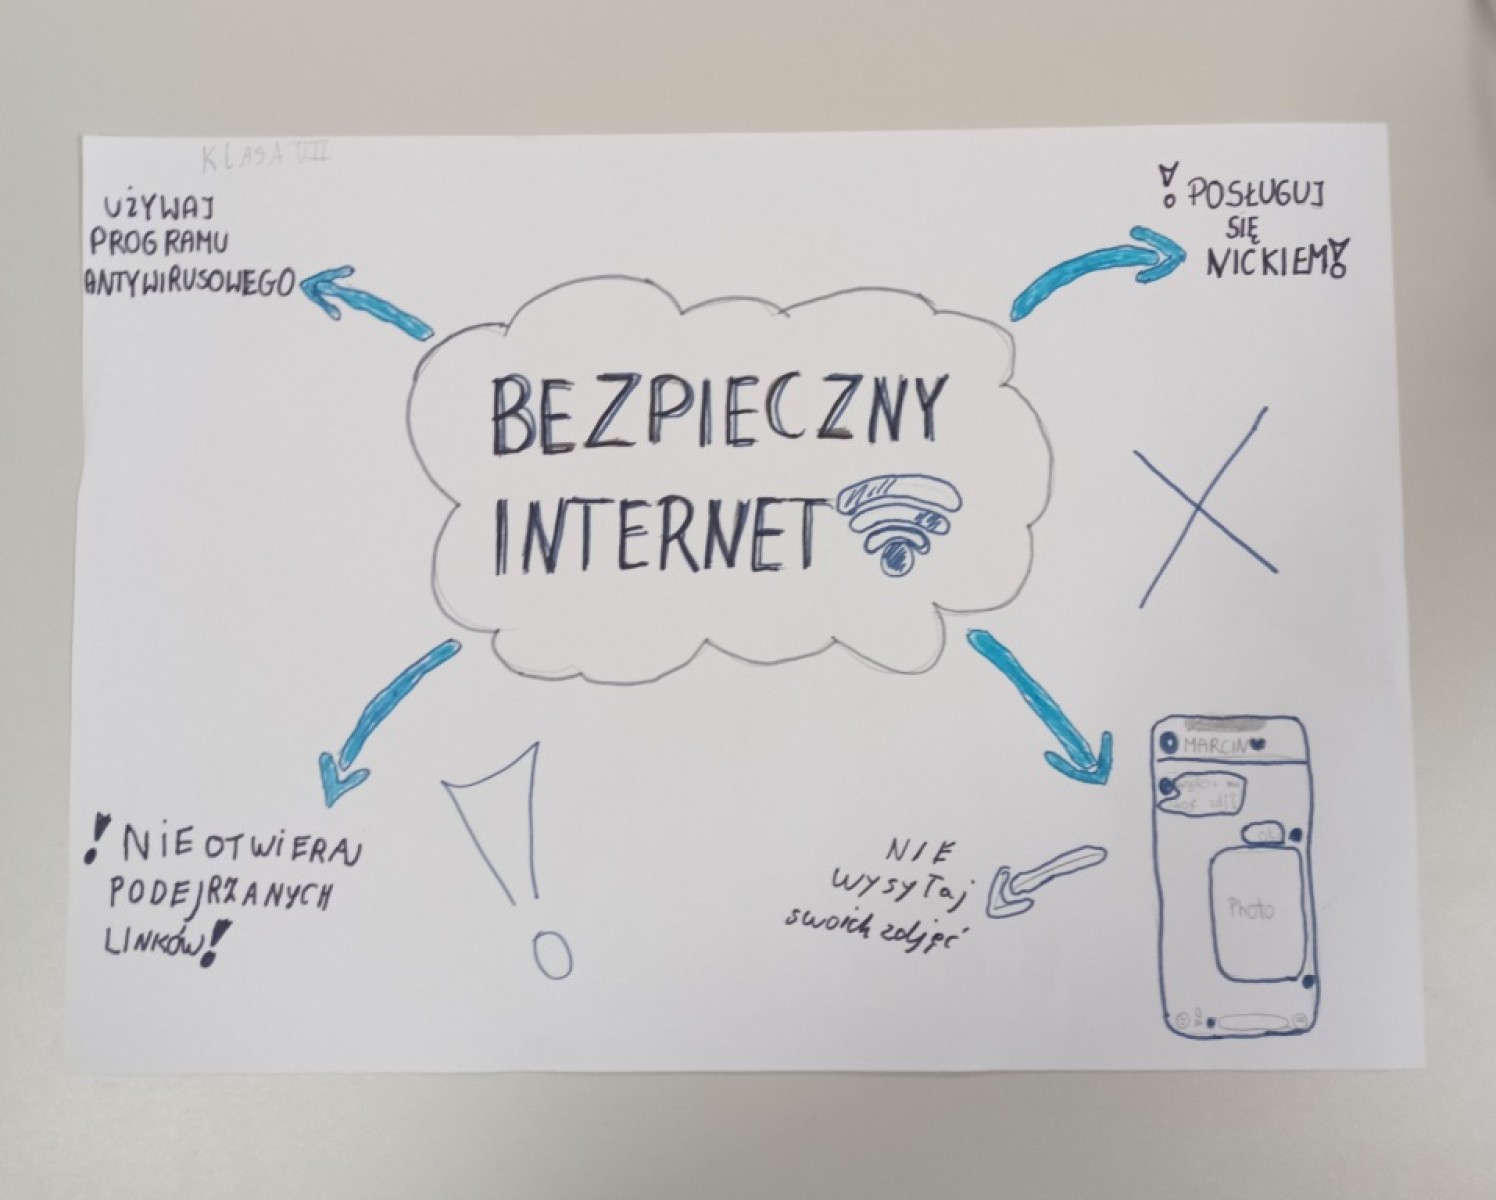 KLASA VII
UŻYWAJ
PROGRAMU
ANTYWIRUSOWEGO
! POSŁUGUJ
SIĘ
NICKIEM!
BEZPIECZNY
INTERNET
! NIE OTWIERAJ
PODEJRZANYCH
LINKÓW!
NIE
WYSYŁaj
swoich zdjęć
MARCIN
ok
Photo